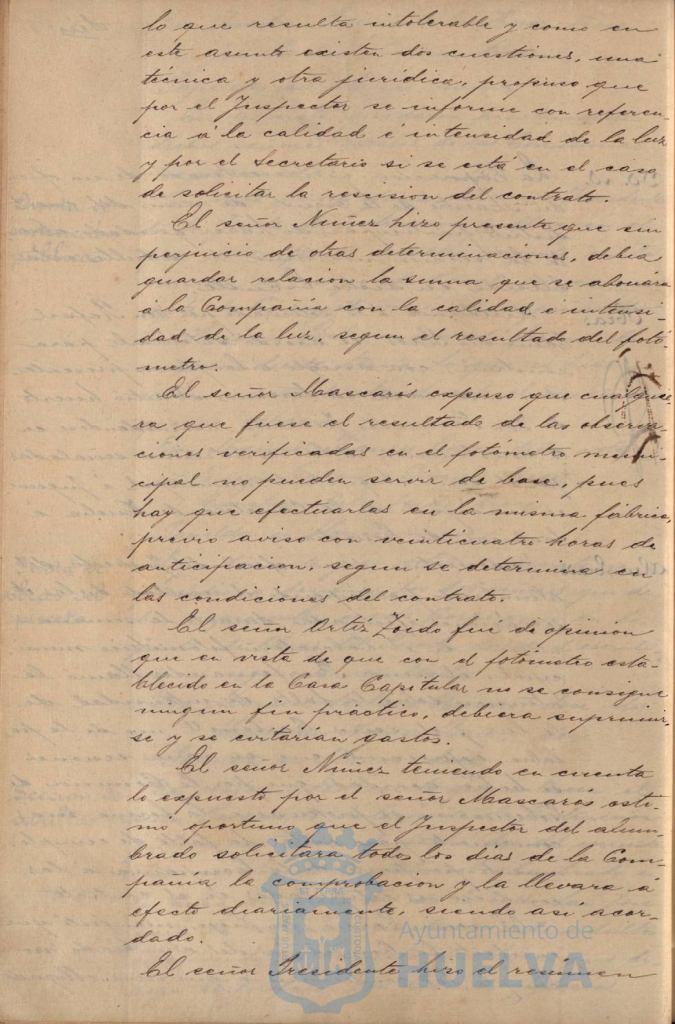 lo que resulta intolerable y como en
este asunto existen dos cuestiones, una
técnica y otra jurídica, propuso que
por el Inspector se informe con referen-
cia á la calidad é intensidad de la luz
y por el Secretario si se está en el caso
de solicitar la rescision del contrato.
El señor Nuñez hizo presente que sin
perjuicio de otras determinaciones, debia
guardar relacion la suma que se abonára
á la Compañía con la calidad é intensi-
dad de la luz, segun el resultado del fotó-
metro.
El señor Mascarós expuso que cualquie-
ra que fuese el resultado de las observa-
ciones verificadas en el fotómetro muni-
cipal no pueden servir de base, pues
hay que efectuarlas en la misma fábrica,
prévio aviso con veinticuatro horas de
anticipacion, segun se determina en
las condiciones del contrato.
El señor Ortíz Zoido fué de opinion
que en vista de que con el fotómetro esta-
blecido en la Casa Capitular no se consigue
ningun fin práctico, debiera suprimir-
se y se evitarian gastos.
El señor Nuñez teniendo en cuenta
lo expuesto por el señor Mascarós esti-
mó oportuno que el Inspector del alum-
brado solicitára todos los dias de la Com-
pañía la comprobacion y la llevara á
efecto diariamente, siendo así acor-
dado.
El señor Presidente hizo el resúmen
Ayuntamiento de
HUELVA